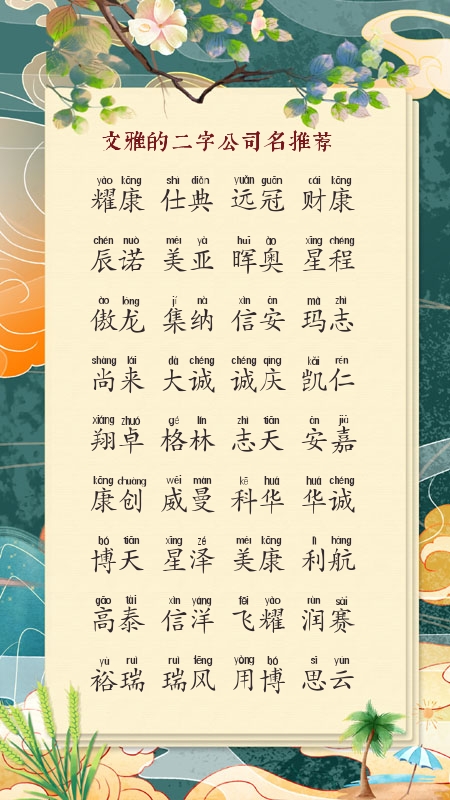 文雅的二字公司名推荐
yào kāng shì diǎn yuǎn guān cái kāng
耀康 仕典 远冠 财康
chén nuò měi yà huī ào xīng chéng
辰诺 美亚 晖奥 星程
ào lóng jí nà xìn ān mǎ zhì
傲龙 集纳 信安 玛志
shàng lái dà chéng chéng qìng kǎi rén
尚来 大诚 诚庆 凯仁
xiáng zhuó gé lín zhì tiān ān jiā
翔卓 格林 志天 安嘉
kāng chuàng wēi màn kē huá huá chéng
康创 威曼 科华 华诚
bó tiān xīng zé měi kāng lì háng
博天 星泽 美康 利航
gāo tài xìn yáng fēi yào rùn sài
高泰 信洋 飞耀 润赛
yù ruì ruì fēng yòng bó sī yún
裕瑞 瑞风 用博 思云